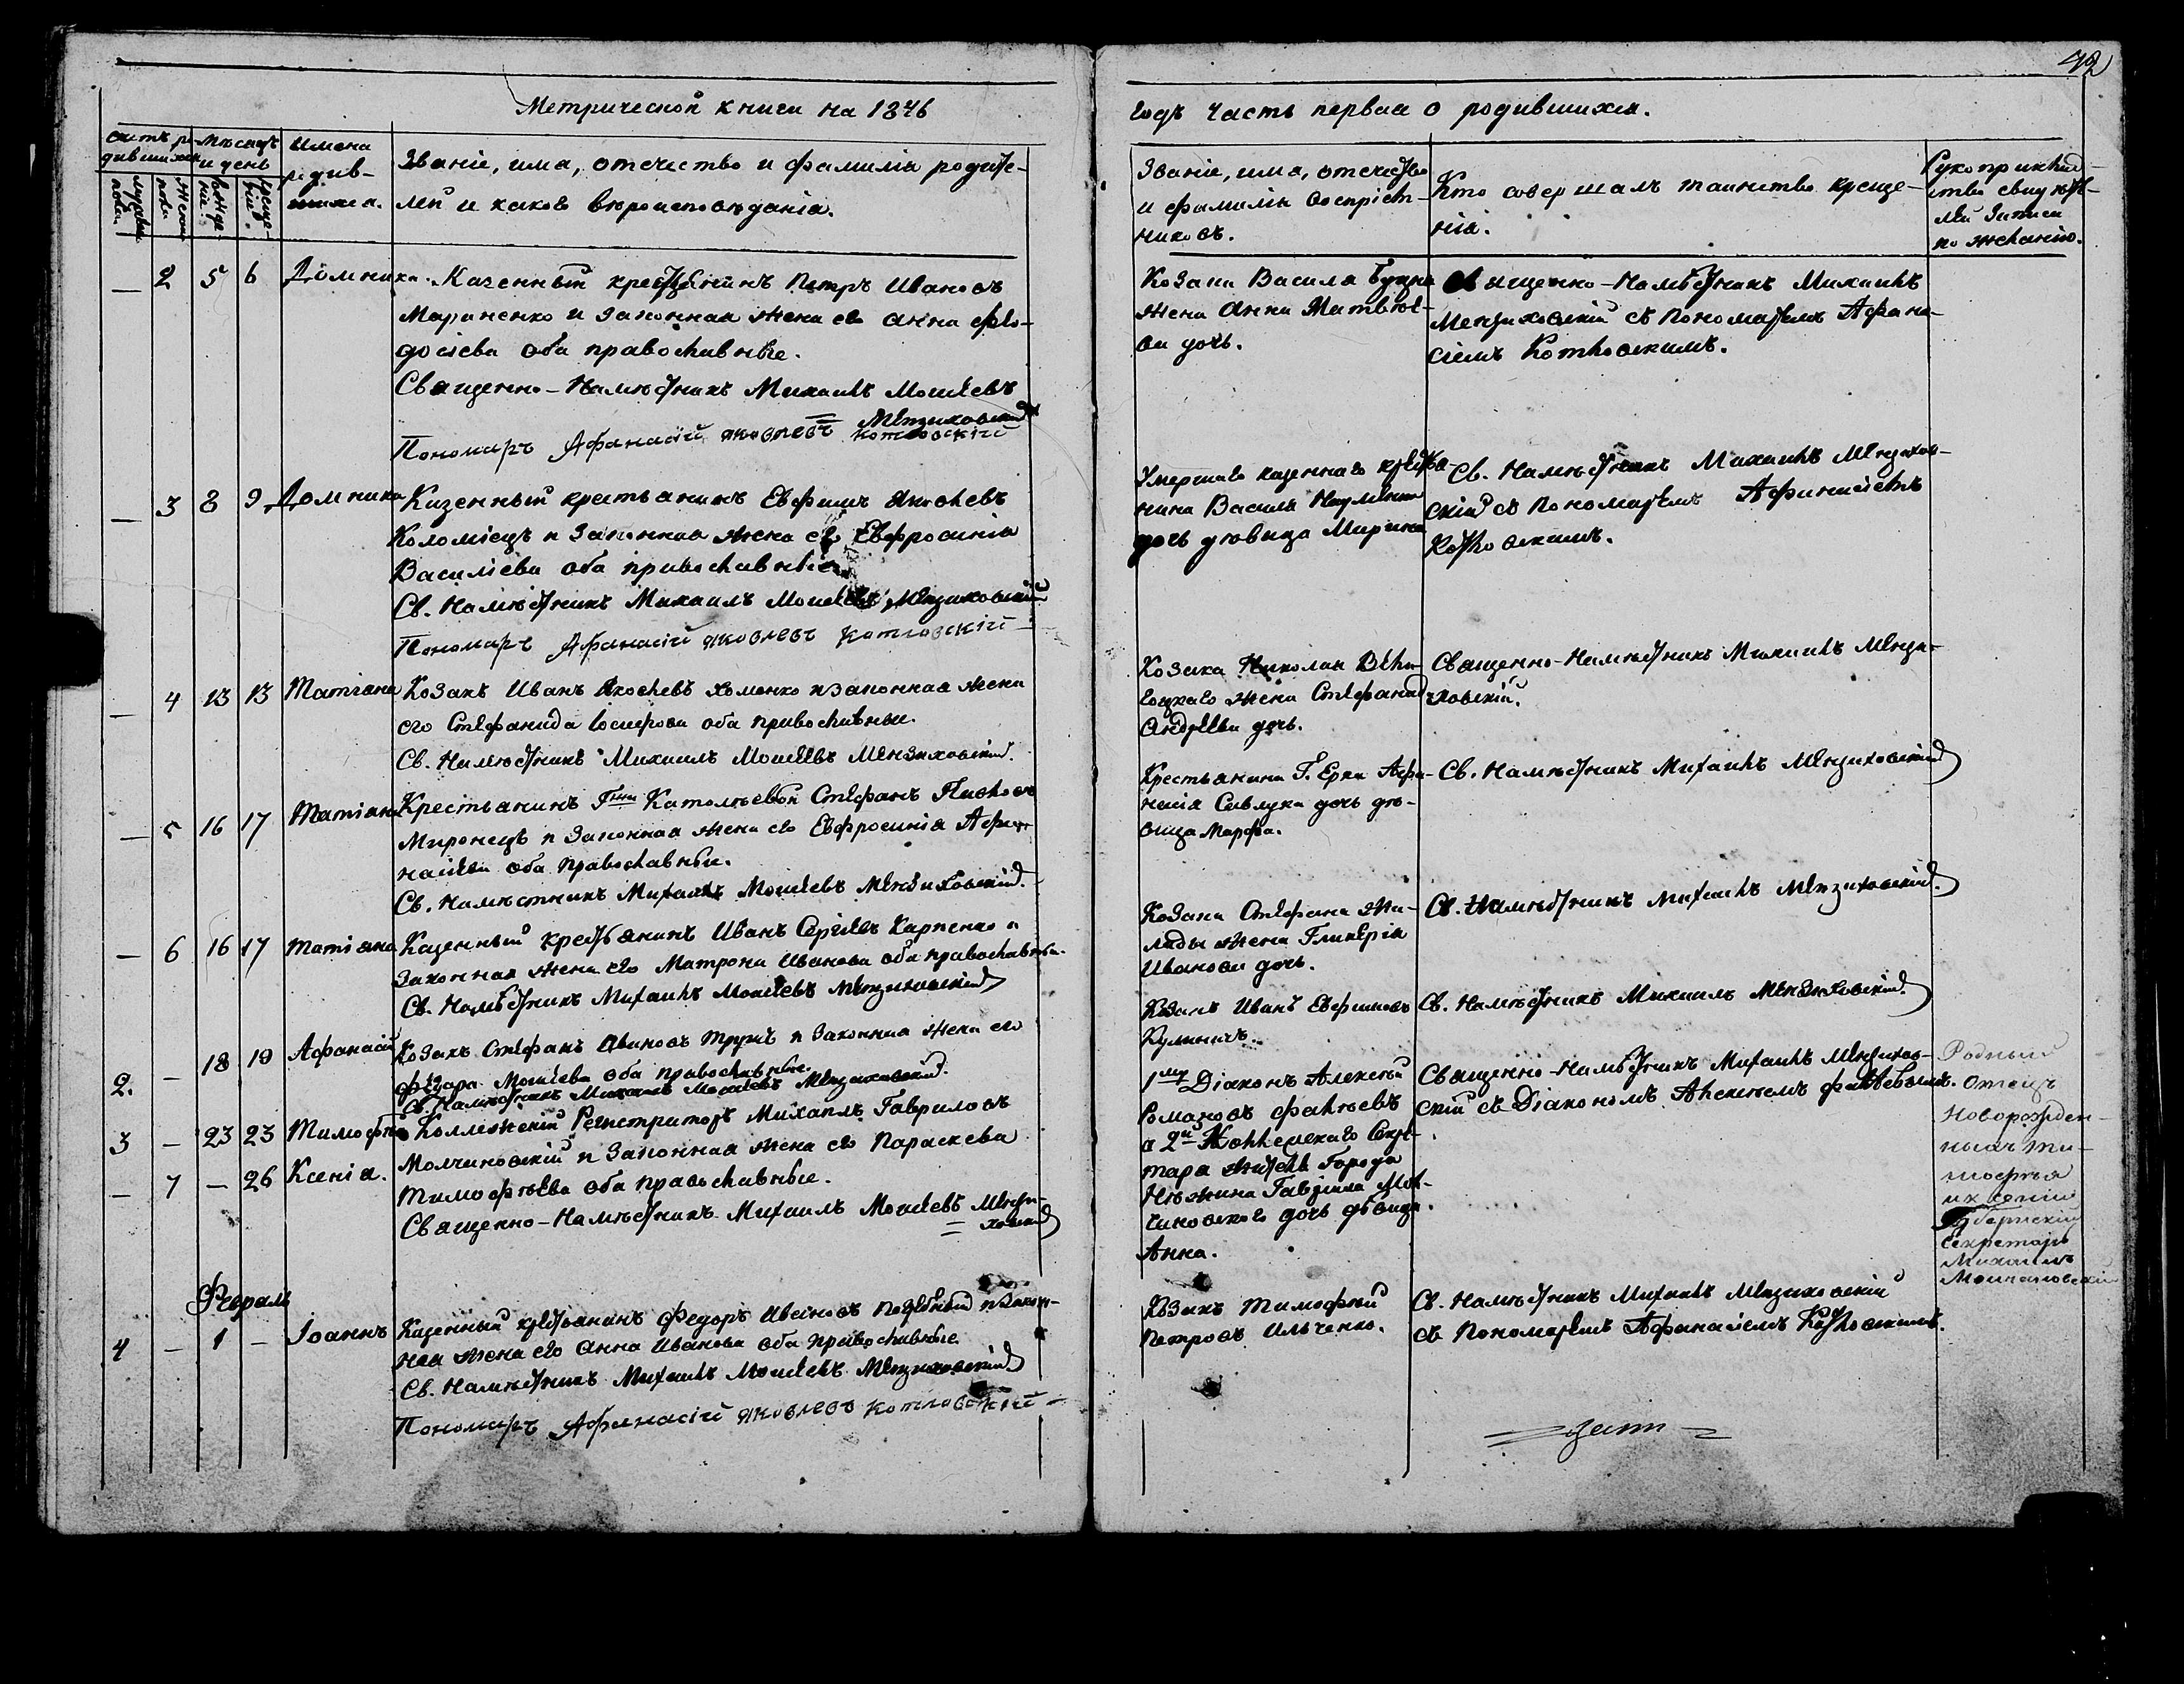 42
Метрической книги на 1846
годъ часть первая о родившихся.
счетъ ро-
дившихся
мужеска
пола
женска
пола
мѣсяцъ
и день
рожде-
нія
креще-
нія.
Имена
родив-
шихся.
Званіе, имя, отечество и фамилія родите-
лей и какого вѣроисповѣданія.
Званіе, имя, отечество
и фамилія воспріем-
никовъ.
Кто совершалъ таинство креще-
нія.
Рукоприклад-
ство свидѣте-
лей записи
по желанію.
— 2 5 6 Домника.
Казенный крестьянинъ Петръ Ивановъ
Мариненко и законная жена его Анна Фео-
досіева оба православные.
Священно-Намѣстникъ Михаилъ Моисеевъ
Мензиховскій
Пономаръ Афанасій Яковлевъ Котловскій
Козака Василя
жена Анна Матвѣе-
ва дочь.
Священно-Намѣстникъ Михаилъ
Мензиховскій съ пономаремъ Афана-
сіемъ Котловскимъ.
— 3 8 9 Домника
Казенный крестьянинъ Евфимъ Яковлевъ
Коломіецъ и законная жена его Евфросинія
Василіева оба православные
Св. Намѣстникъ Михаилъ Моисеевъ Мензиховскій
Пономаръ Афанасій Яковлевъ Котловскій
Умершаго казеннаго крестья-
нина Василя Науменка
дочь дѣвица Марина
Св. Намѣстникъ Михаилъ Мензихов-
скій съ пономаремъ Афанасіемъ
Котловскимъ.
— 4 13 13 Татіана
Козакъ Иванъ Яковлевъ Хоменко и законная жена
его Стефанида Іосифова оба православные.
Св. Намѣстникъ Михаилъ Моисеевъ Мензиховскій.
Козака Николая
жена Стефанида
Андреева дочь.
Священно-Намѣстникъ Михаилъ Мензи-
ховскій.
— 5 16 17 Татіана
Крестьянинъ Стефанъ Павловъ
Миронецъ и законная жена его Евфросинія Афа-
насіева оба православные.
Св. Намѣстникъ Михаилъ Моисеевъ Мензиховскій.
Крестьянина Г. Ерки Афа-
насія Савлука дочь дѣ-
вица Марфа.
Св. Намѣстникъ Михаилъ Мензиховскій
— 6 16 17 Татіана
Казенный крестьянинъ Иванъ Сергіевъ Карпенко и
законная жена его Матрона Иванова оба православные.
Св. Намѣстникъ Михаилъ Моисеевъ Мензиховскій
Козака Стефана Жи-
лады жена Гликерія
Иванова дочь.
Св. Намѣстникъ Михаилъ Мензиховскій.
2. — 18 19 Афанасій
Козакъ Стефанъ Ивановъ и законная жена его
Моисіева оба православные.
Св. Намѣстникъ Михаилъ Моисеевъ Мензиховскій.
Козакъ Иванъ Евфимовъ
Куличъ.
Св. Намѣстникъ Михаилъ Мензиховскій.
3 — 23 23 Тимофей
— 7 — 26 Ксенія.
Коллежскій Регистраторъ Михаилъ Гавриловъ
Молчановскій и законная жена его Параскева
Тимофѣева оба православные.
Священно-Намѣстникъ Михаилъ Моисеевъ Мензи-
ховскій
1му Діаконъ Алексѣй
Романовъ
а 2й Коллежскаго Секре-
тара жителя города
Нѣжина Гавріила Мол-
чановскаго дочь дѣвица
Анна.
Священно-Намѣстникъ Михаилъ Мензихов-
скій съ Діакономъ Алексѣемъ
Родный
Отецъ
Новорожден-
ныхъ Ти-
мофѣя
и Ксеніи
Губернскій
Секретарь
Михаилъ
Молчановскій
Февраль
4 — 1 — Іоаннъ
Казенный крестьянинъ Федоръ Ивановъ и закон-
ная жена его Анна Иванова оба православные
Св. Намѣстникъ Михаилъ Моисеевъ Мензиховскій
Пономаръ Афанасій Яковлевъ Котловскій
Козакъ Тимофѣй
Петровъ Ильченко.
Св. Намѣстникъ Михаилъ Мензиховскій
съ пономаремъ Афанасіемъ Котловскимъ.